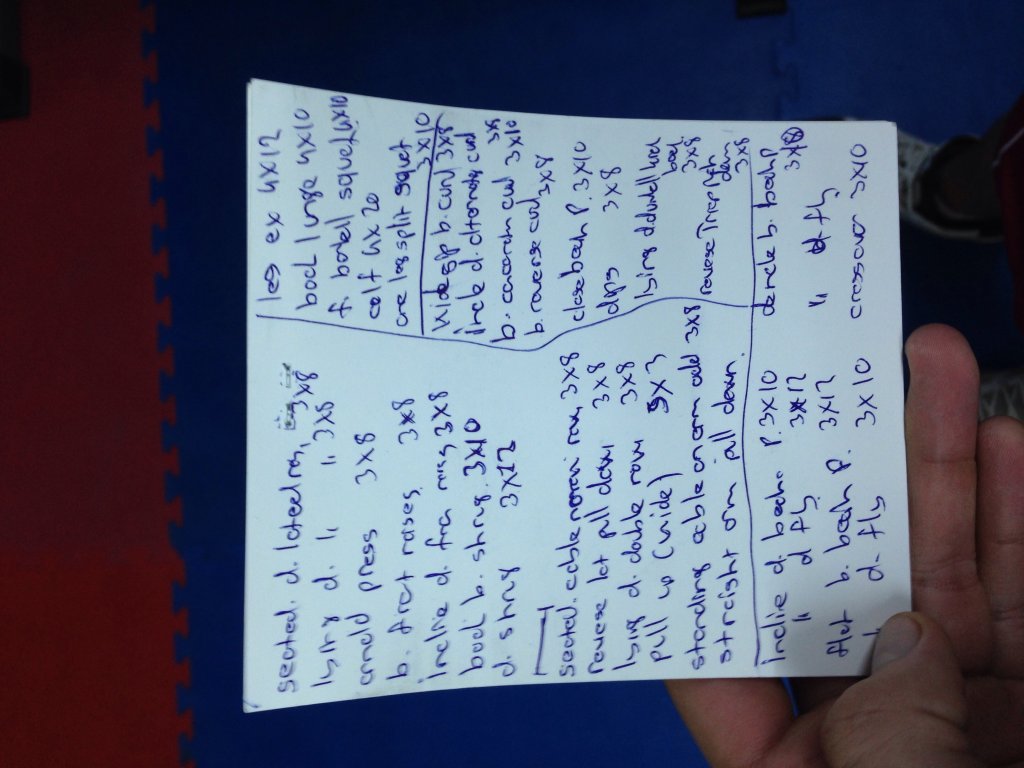 seated. d. lateral ras, 3x8
lying d. 11 11 3x8
arnold press 3x8
b. front raises 3x8
incline d. fron rais, 3x8
back b. shrug. 3x10
d. shrug 3x12
seated. cable narrow row 3x8
reverse lat pull down 3x8
lying d. double row 3x8
pull up (wide) 5x3
standing cable on arm add 3x8
straight arm pull down.
incline d. bech. P. 3x10
" d fly 3x12
flat b. bech P. 3x12
d. fly 3x10
leg ex 4x12
back lunge 4x10
f. barbell squet, 4x10
calf 4x20
one leg split squet
3x10
wide gp b. curl 3x8
incle d. alternate curl
3x8
b. curl 3x10
b. reverse curl, 3x8
close bech P. 3x10
dips 3x8
lying d.
back.
3x8
reverse Tricep
3x8
b. bech P
3x8
" d fly
crossover 3x10